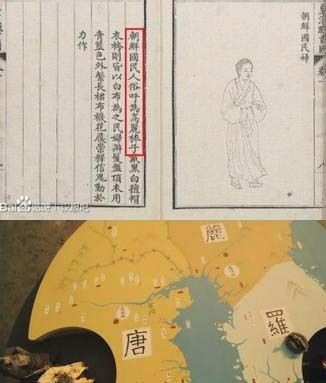 朝鮮國民婦
朝鮮國民人俗呼為高麗棒子戴黑白氊帽
衣袴則皆以白布為之民婦辮髮盤頂衣用
青藍色外繫長裙布襪花履崇釋信鬼勤於
力作
Bai 贴吧
麗
唐
羅